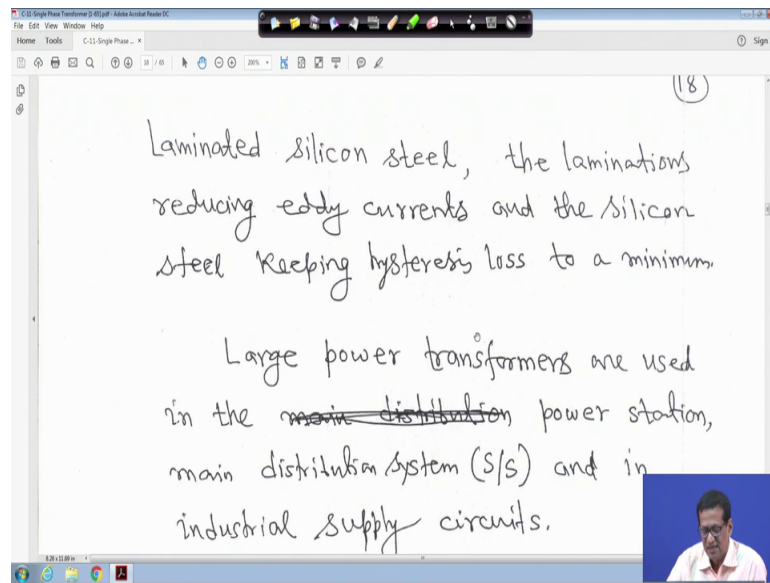 C-11-Single Phase Transformer [1-65].pdf - Adobe Acrobat Reader DC
File Edit View Window Help
Home Tools C-11-Single Phase ... × Sign
18 / 65 200%
18
Laminated silicon steel, the laminations
reducing eddy currents and the silicon
steel keeping hysteresis loss to a minimum.
Large power transformers are used
in the main distribution power station,
main distribution system (S/S) and in
industrial supply circuits.
8.26 x 11.69 in